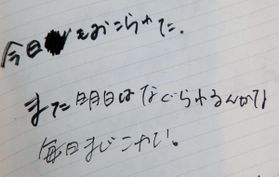 今日もおこられた.
また明日はなぐられるんかな
毎日まじこわい。